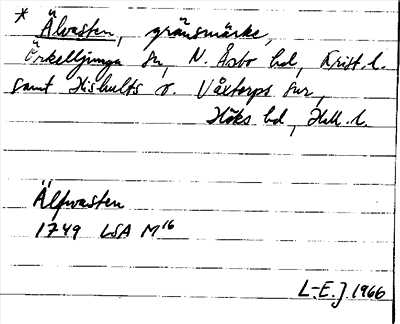 * Älvasten, gränsmärke,
Örkelljunga sn, N. Åsbo hd, Krist. l.
samt Hishults o. Våxtorps snr,
Höks hd, Hall. l.
Älfwasten
1749 LSA M16
L-E.J. 1966